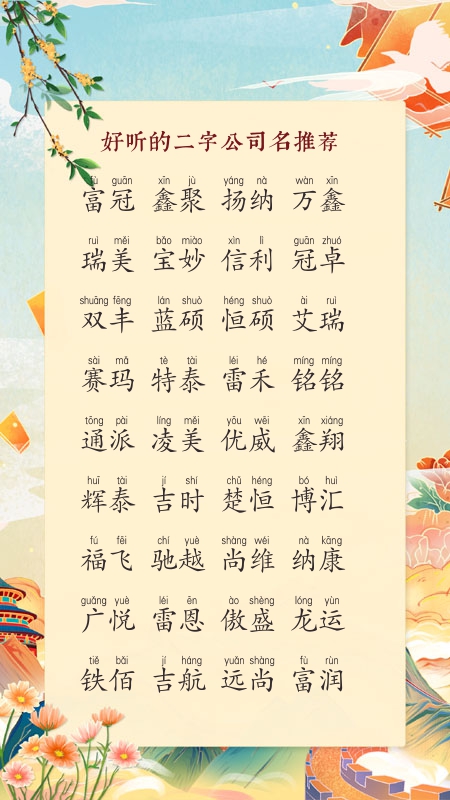 好听的二字公司名推荐
fù guān xīn jù yáng nà wàn xīn
富冠 鑫聚 扬纳 万鑫
ruì měi bǎo miào xìn lì guān zhuó
瑞美 宝妙 信利 冠卓
shuāng fēng lán shuò héng shuò ài ruì
双丰 蓝硕 恒硕 艾瑞
sài mǎ tè tài léi hé míng míng
赛玛 特泰 雷禾 铭铭
tōng pài líng měi yōu wēi xīn xiáng
通派 凌美 优威 鑫翔
huī tài jí shí chǔ héng bó huì
辉泰 吉时 楚恒 博汇
fú fēi chí yuè shàng wéi nà kāng
福飞 驰越 尚维 纳康
guǎng yuè léi ēn ào shèng lóng yùn
广悦 雷恩 傲盛 龙运
tiě bǎi jí háng yuǎn shàng fù rùn
铁佰 吉航 远尚 富润